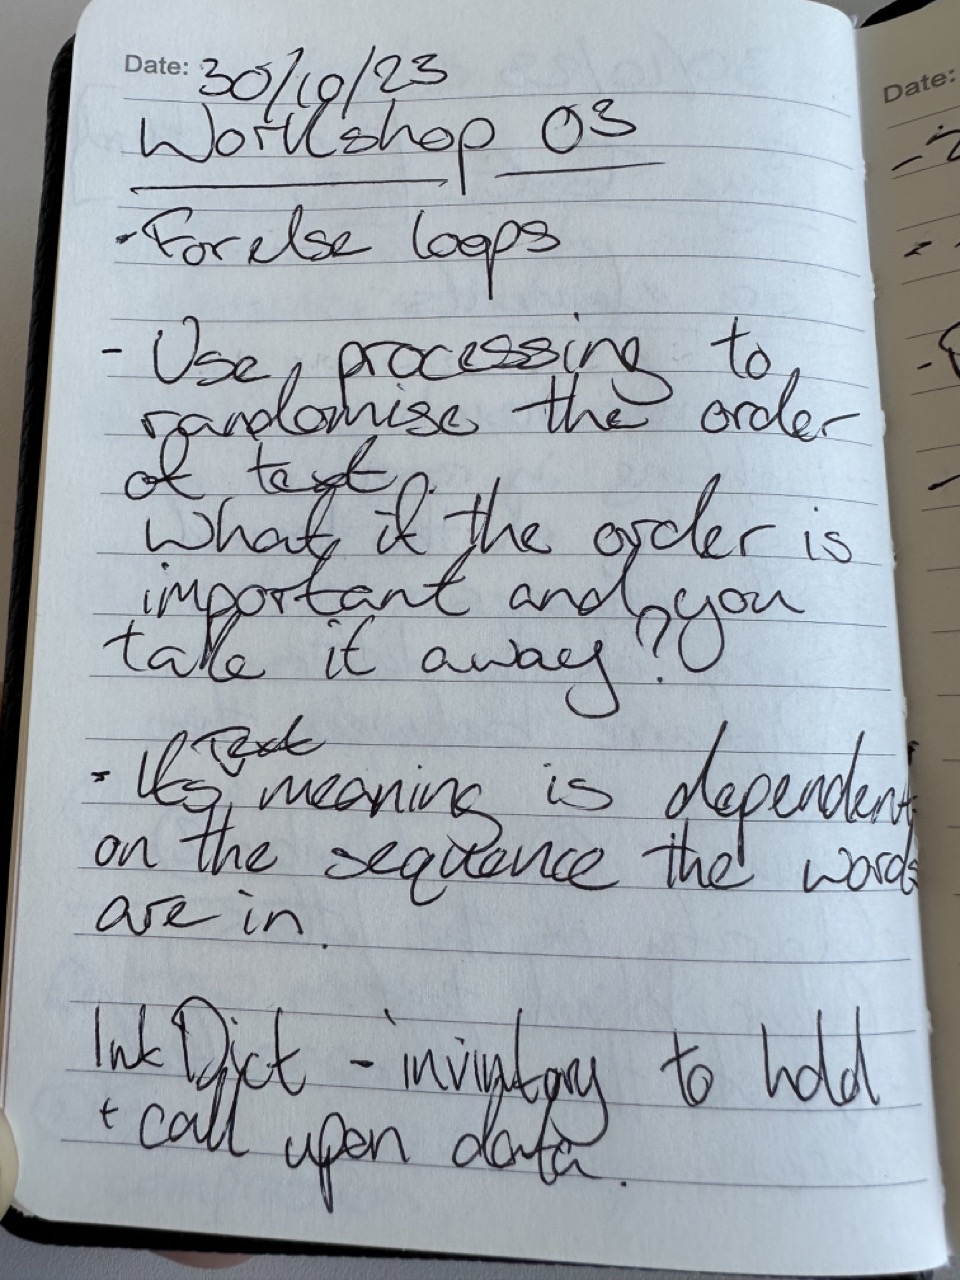 Date: 30/10/23
Workshop 03
- For else loops
- Use processing to
randomise the order
of text.
What if the order is
important and you
take it away?
Text
- Its meaning is dependent
on the sequence the words
are in.
Int Dict - invintory to hold
+ call upon data.
Date: